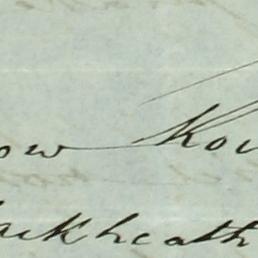 ow Row
lackheath